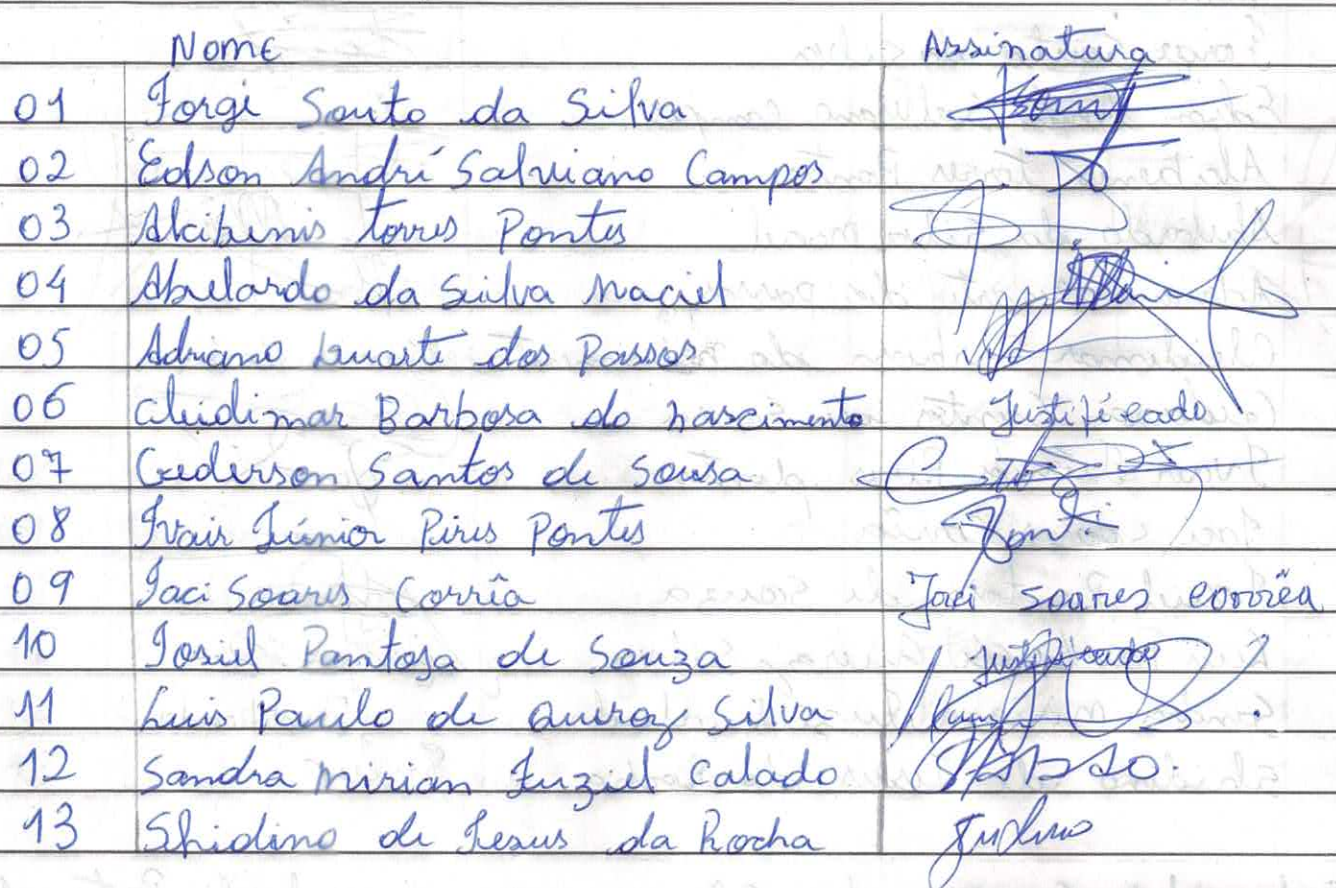 Nome Assinatura
01 Jorge Souto da Silva
02 Edson André Salviano Campos
03 Alcibenis torres Pontes
04 Abelardo da Silva Maciel
05 Adriano Duarte dos Passos
06 Cleidimar Barbosa do nascimento Justificado
07 Gederson Santos de Sousa
08 Ivair Júnior Pires Pontes
09 Jaci Soares Corrêa Jaci Soares Corrêa
10 Josiel Pantoja de Souza Justificado
11 Luis Paulo de Queroz Silva
12 Sandra Mirian Juziel Calado
13 de Jesus da Rocha